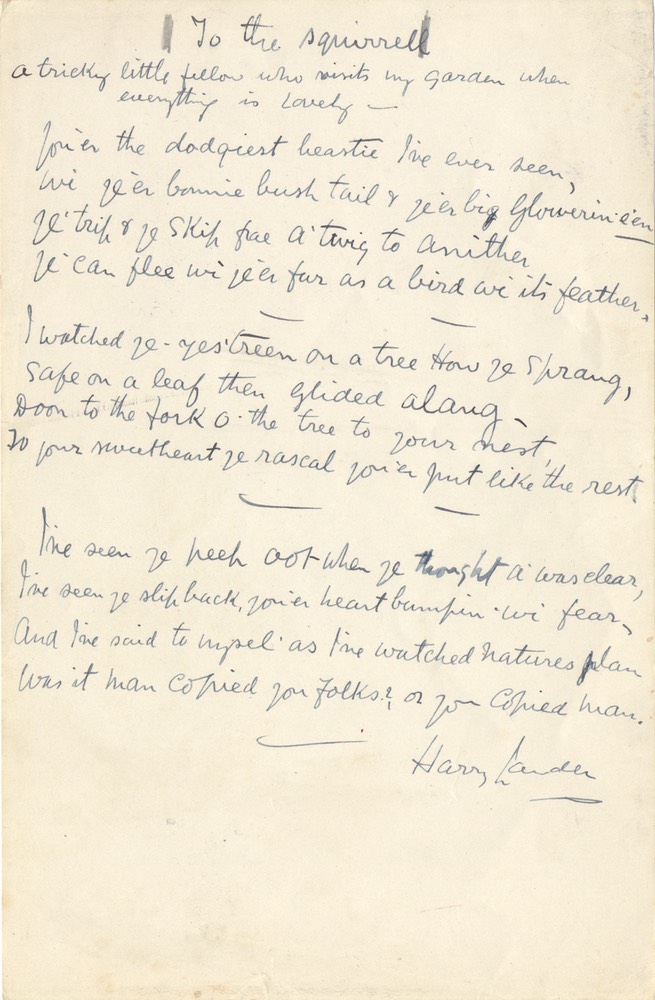 To the squirrell
a tricky little fellow who visits my garden when
everything is Lovely —
You'er the dodgiest beastie I've ever seen,
Wi' ye'er bonnie bush tail & ye'er big Glowerin e'en
Ye' trip & ye skip frae a' twig to anither
Ye' can flee wi ye'er fur as a bird wi' its feather.
I watched ye - yes'treen on a tree How ye sprang,
Safe on a leaf then glided alang -
Doon to the fork o' the tree to your nest,
To your sweetheart ye rascal you'er just like the rest.
I've seen ye peek oot when ye thought a' was clear,
I've seen ye slip back, you'er heart bumpin' wi' fear,
And I've said to mysel' as I've watched natures plan
Was it man copied you folks?, or you copied man.
Harry Lauder